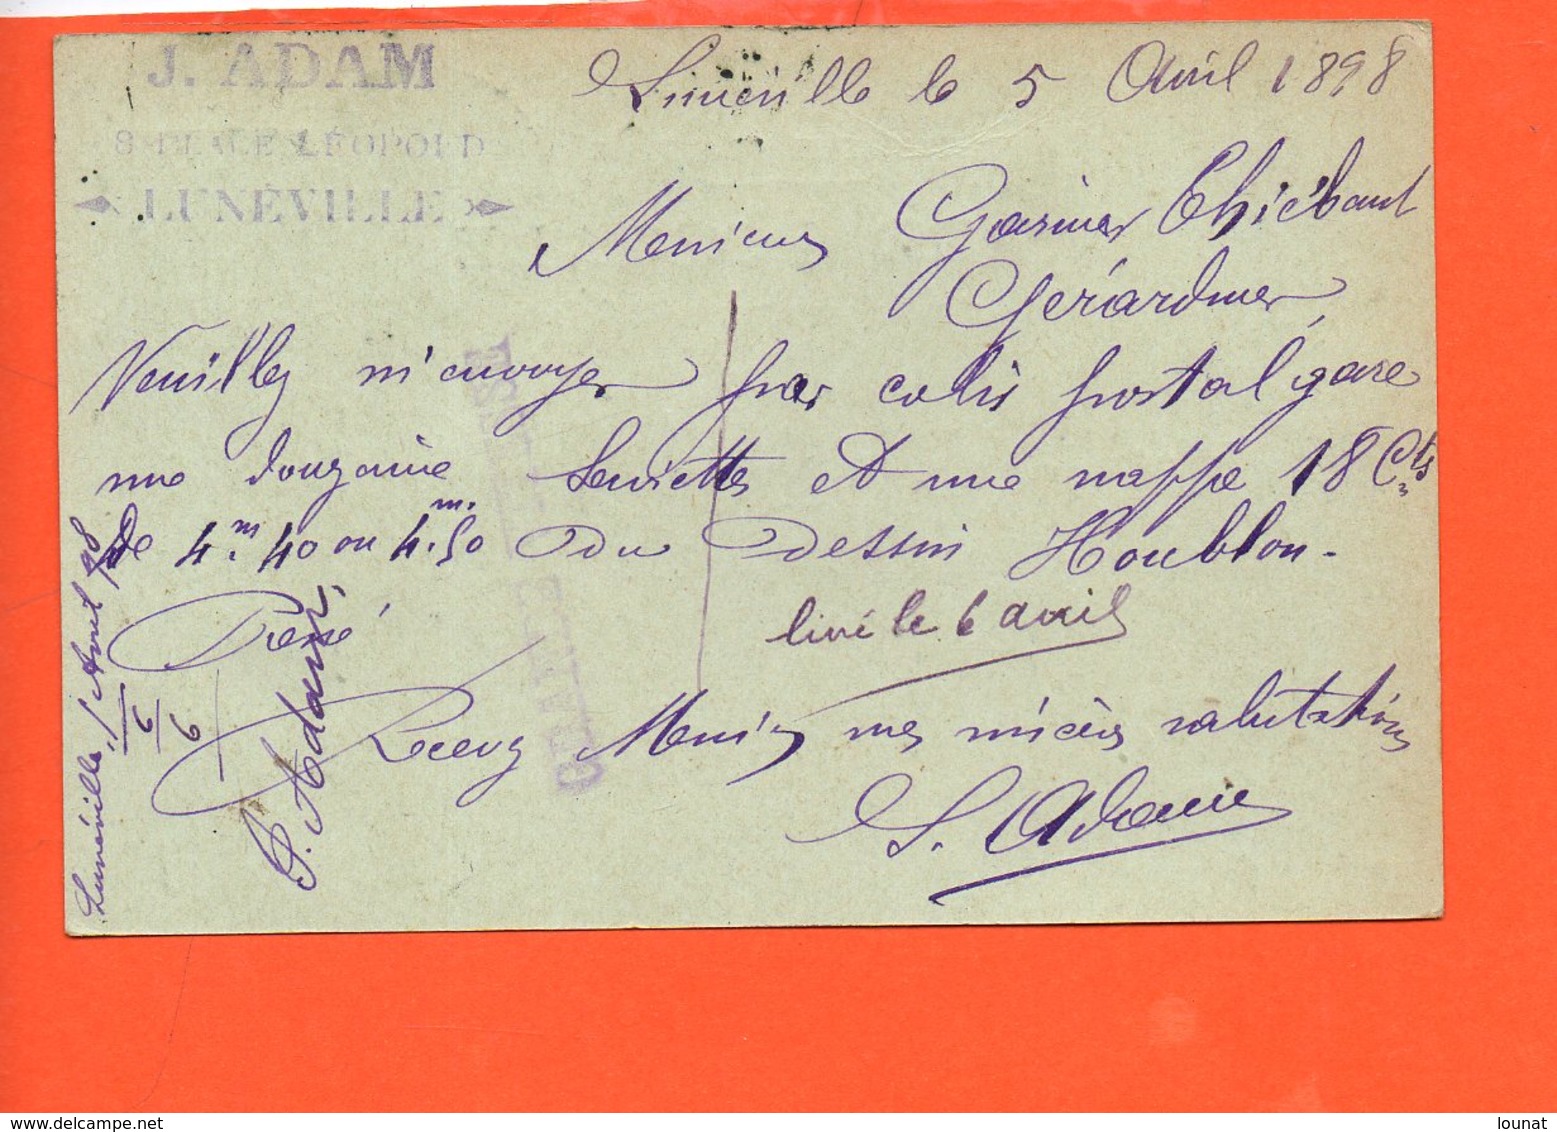 J. ADAM
8 PLACE LÉOPOLD
LUNÉVILLE
Lunéville le 5 Avril 1898
Messieurs Garnier Thiébaut
Gérardmer,
Veuillez m'envoyer par colis postal gare
une douzaine Serviettes et une nappe 18 Cts
de 4m.40 ou 4m.50 du Dessin Houblon.
livré le 6 avril
Pressé
Recevez Messieurs mes sincères salutations
J. Adam
Lunéville, 98
J. Adam
lounat